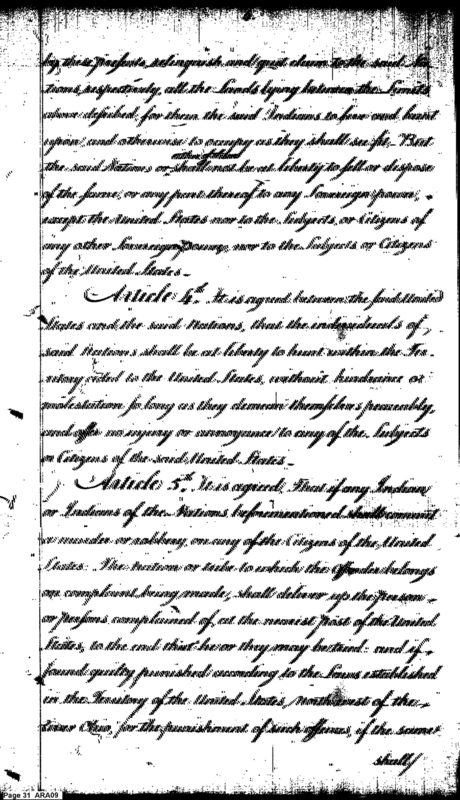 by these presents, relinquish and quit claim to the said Na
tions, respectively, all the Lands lying between the Limits
above described, for them the said Indians to live and hunt
upon, and otherwise to occupy as they shall see fit. But
the said Nations or either of them
shall not be at liberty to sell or dispose
of the same, or any part thereof to any Sovereign power,
except the United States nor to the Subjects, or Citizens of
any other Sovereign power, nor to the Subjects or Citizens
of the United States_
Article 4th. It is agreed between the said United
States and the said Nations, that the individuals of
said Nations shall be at liberty to hunt within the Ter-
ritory ceded to the United States, without hindrance or
molestation so long as they demean themselves peaceably,
and offer no injury or annoyance to any of the Subjects
or Citizens of the said United States_
Article 5th. It is agreed, That if any Indian
or Indians of the Nations, beforementioned shall commit
a murder or robbery, on any of the Citizens of the United
States. The nation or tribe to which the Offender belongs
on complaint being made, shall deliver up the person
or persons complained of at the nearest post of the United
States, to the end that he or they may be tried: and if
found guilty punished according to the Laws established
in the Territory of the United States, north west of the
river Ohio, for the punishment of such offences, if the same
shall/
Page 31 ARA09